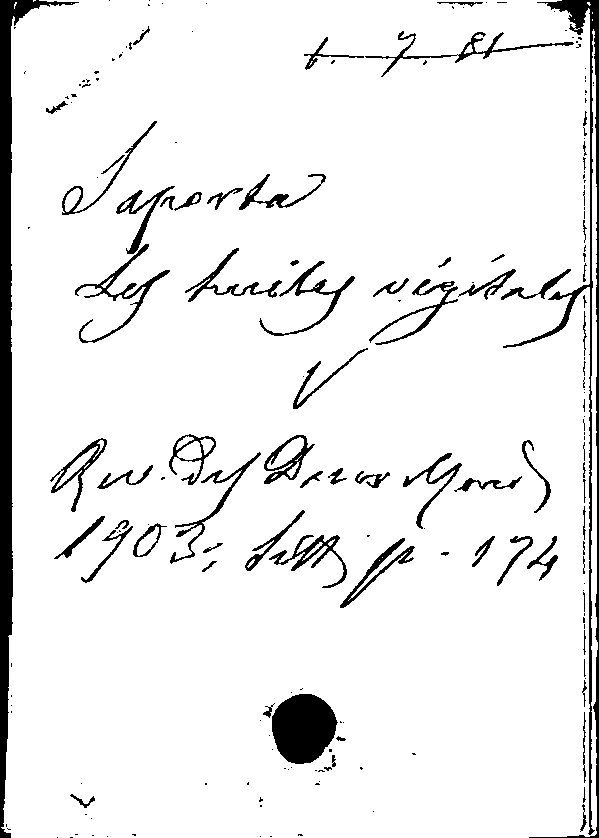 1. 7. 81
Saporta
Les huiles végétales
V
Rev. Des Deux Mond
1903; Sett p - 174